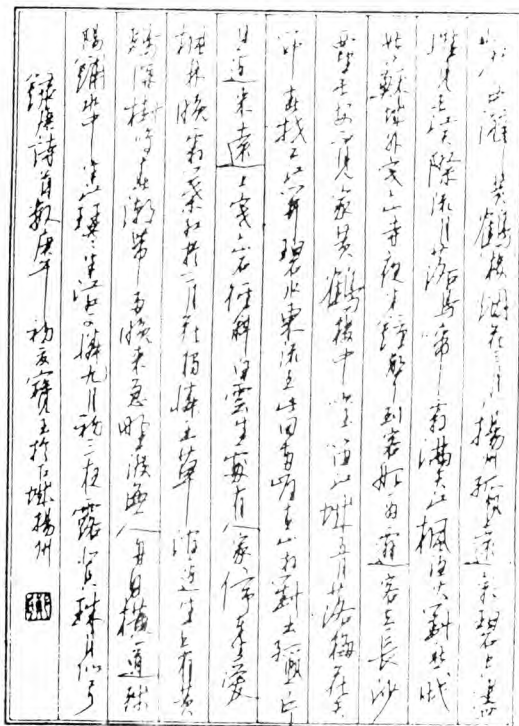 故人西辞黄鶴楼烟花三月下揚州孤帆遠影碧空盡
惟見長江天際流月落烏啼霜满天江楓漁火對愁眠
姑蘇城外寒山寺夜半鐘聲到客船一为遷客去長沙
西望長安不見家黄鶴樓中吹玉笛江城五月落梅花天
门中断楚江開碧水東流至此回兩岸青山相對出孤帆一片
日边来遠上寒山石徑斜白雲生處有人家停車坐愛
楓林晚霜葉红於二月花獨憐幽草澗边生上有黄
鹂深樹鸣春潮带雨晚来急野渡無人舟自横一道殘
陽鋪水中半江瑟瑟半江红可憐九月初三夜露似真珠月似弓
録唐詩首数庚午初夏寶玉於江城揚州